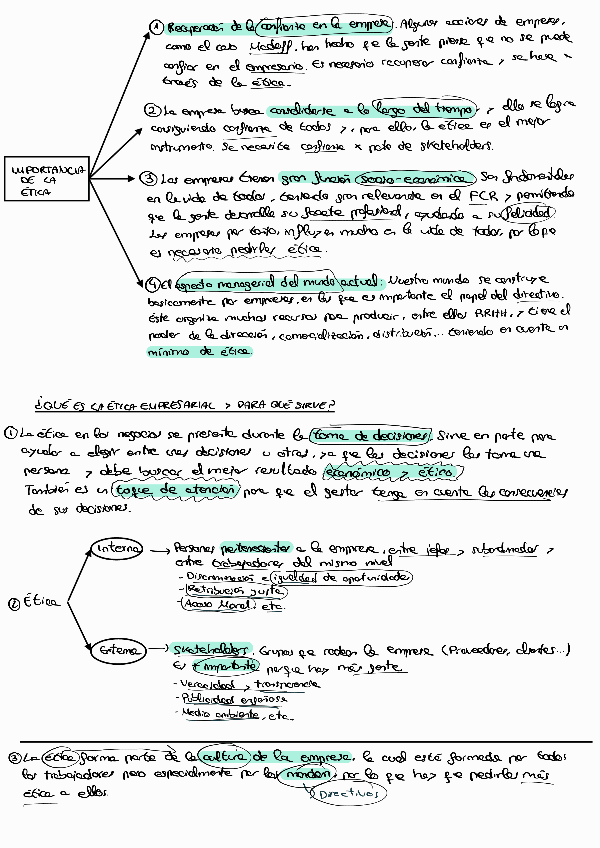 ① Recuperación de la confianza en la empresa. Algunas acciones de empresa,
como el caso Madoff, han hecho que la gente piense que no se puede
confiar en el empresario. Es necesario recuperar confianza y se hace a
través de la ética.
② La empresa busca consolidarse a lo largo del tiempo y ello se logra
consiguiendo confianza de todos y, para ello, la ética es el mejor
instrumento. Se necesita confianza x parte de stakeholders.
IMPORTANCIA
DE LA
ÉTICA
③ Las empresas tienen gran función socio-económica. Son fundamentales
en la vida de todos, teniendo gran relevancia en el FCR y permitiendo
que la gente desarrolle su faceta profesional, ayudando a su felicidad.
Las empresas por tanto, influyen mucho en la vida de todos, por lo que
es necesario pedirles ética.
④ El aspecto managerial del mundo actual: Nuestro mundo se construye
basicamente por empresas, en las que es importante el papel del directivo.
Éste organiza muchos recursos para producir, entre ellos RRHH, y tiene el
poder de la dirección, comercialización, distribución... teniendo en cuenta un
mínimo de ética.
¿QUÉ ES LA ÉTICA EMPRESARIAL Y PARA QUÉ SIRVE?
① La ética en los negocios se presenta durante la toma de decisiones. Sirve en parte para
ayudar a elegir entre unas decisiones u otras, ya que las decisiones las toma una
persona y debe buscar el mejor resultado económico y ético.
También es un toque de atención para que el gestor tenga en cuenta las consecuencias
de sus decisiones.
Interna → Personas pertenecientes a la empresa, entre jefes y subordinados y
entre trabajadores del mismo nivel
- Discriminación e igualdad de oportunidades
- Retribución justa
- Acoso Moral, etc.
② Ética
Externa → Stakeholders. Grupos que rodean la empresa (Proveedores, clientes...)
Es + importante porque hay más gente
- Veracidad y transparencia
- Publicidad engañosa
- Medio ambiente, etc.
③ La ética forma parte de la cultura de la empresa, la cual está formada por todos
los trabajadores pero especialmente por los que mandan, por lo que hay que pedirles más
ética a ellos.
↳ Directivos